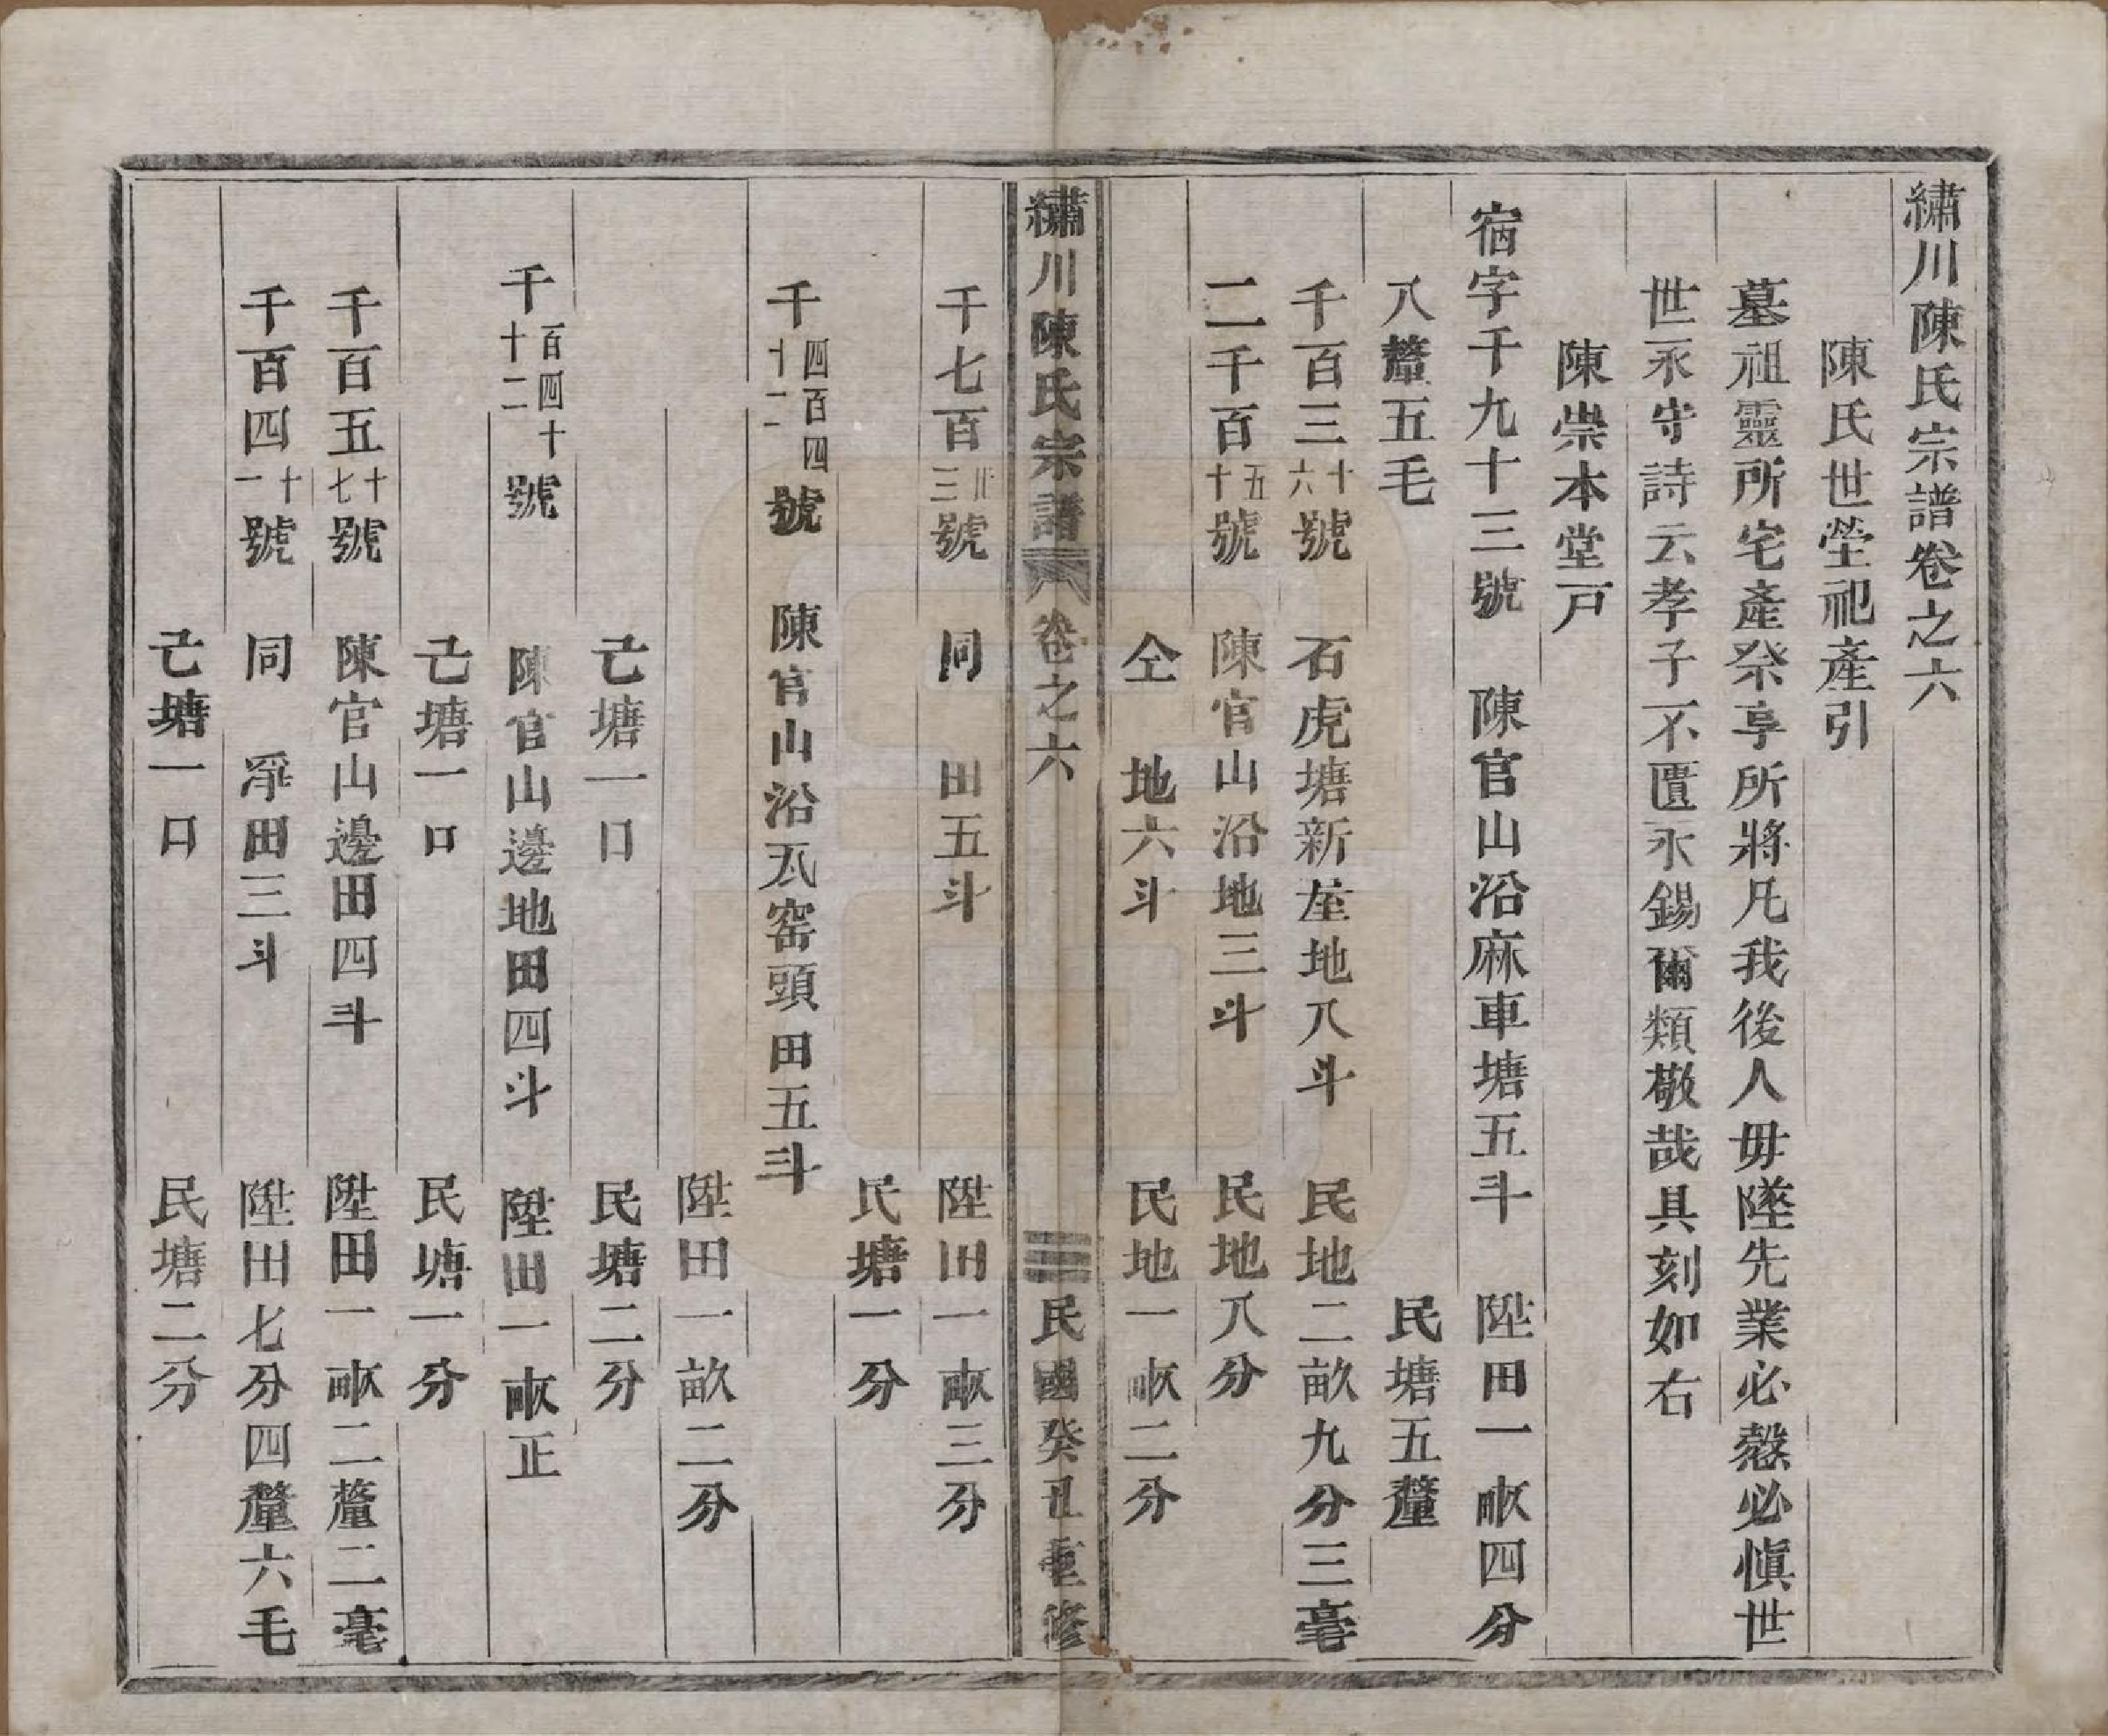 繡川陳氏宗譜卷之六
陳氏世塋祀產引
墓祖靈所宅產祭享所將凡我後人毋墜先業必慤必愼世
世永守詩云孝子不匱永錫爾類敬哉具刻如右
陳崇本堂戸
宿字千九十三號　陳官山沿麻車塘五斗　陞田一畝四分
八釐五毛　民塘五釐
千百三十六號　石虎塘新屋地八斗　民地二畝九分三毫
二千百五十號　陳官山沿地三斗　民地八分
仝　地六斗　民地一畝二分
繡川陳氏宗譜　卷之六　民國癸丑重修
千七百卅三號　同　田五斗　陞田一畝三分
民塘一分
千四百四十二號　陳官山沿瓦窑頭田五斗
陞田一畝二分
己塘一口　民塘二分
千百四十十二號　陳官山邊地田四斗　陞田一畝正
己塘一口　民塘一分
千百五十七號　陳官山邊田四斗　陞田一畝二釐二毫
千百四十一號　同　浮田三斗　陞田七分四釐六毛
己塘一口　民塘二分